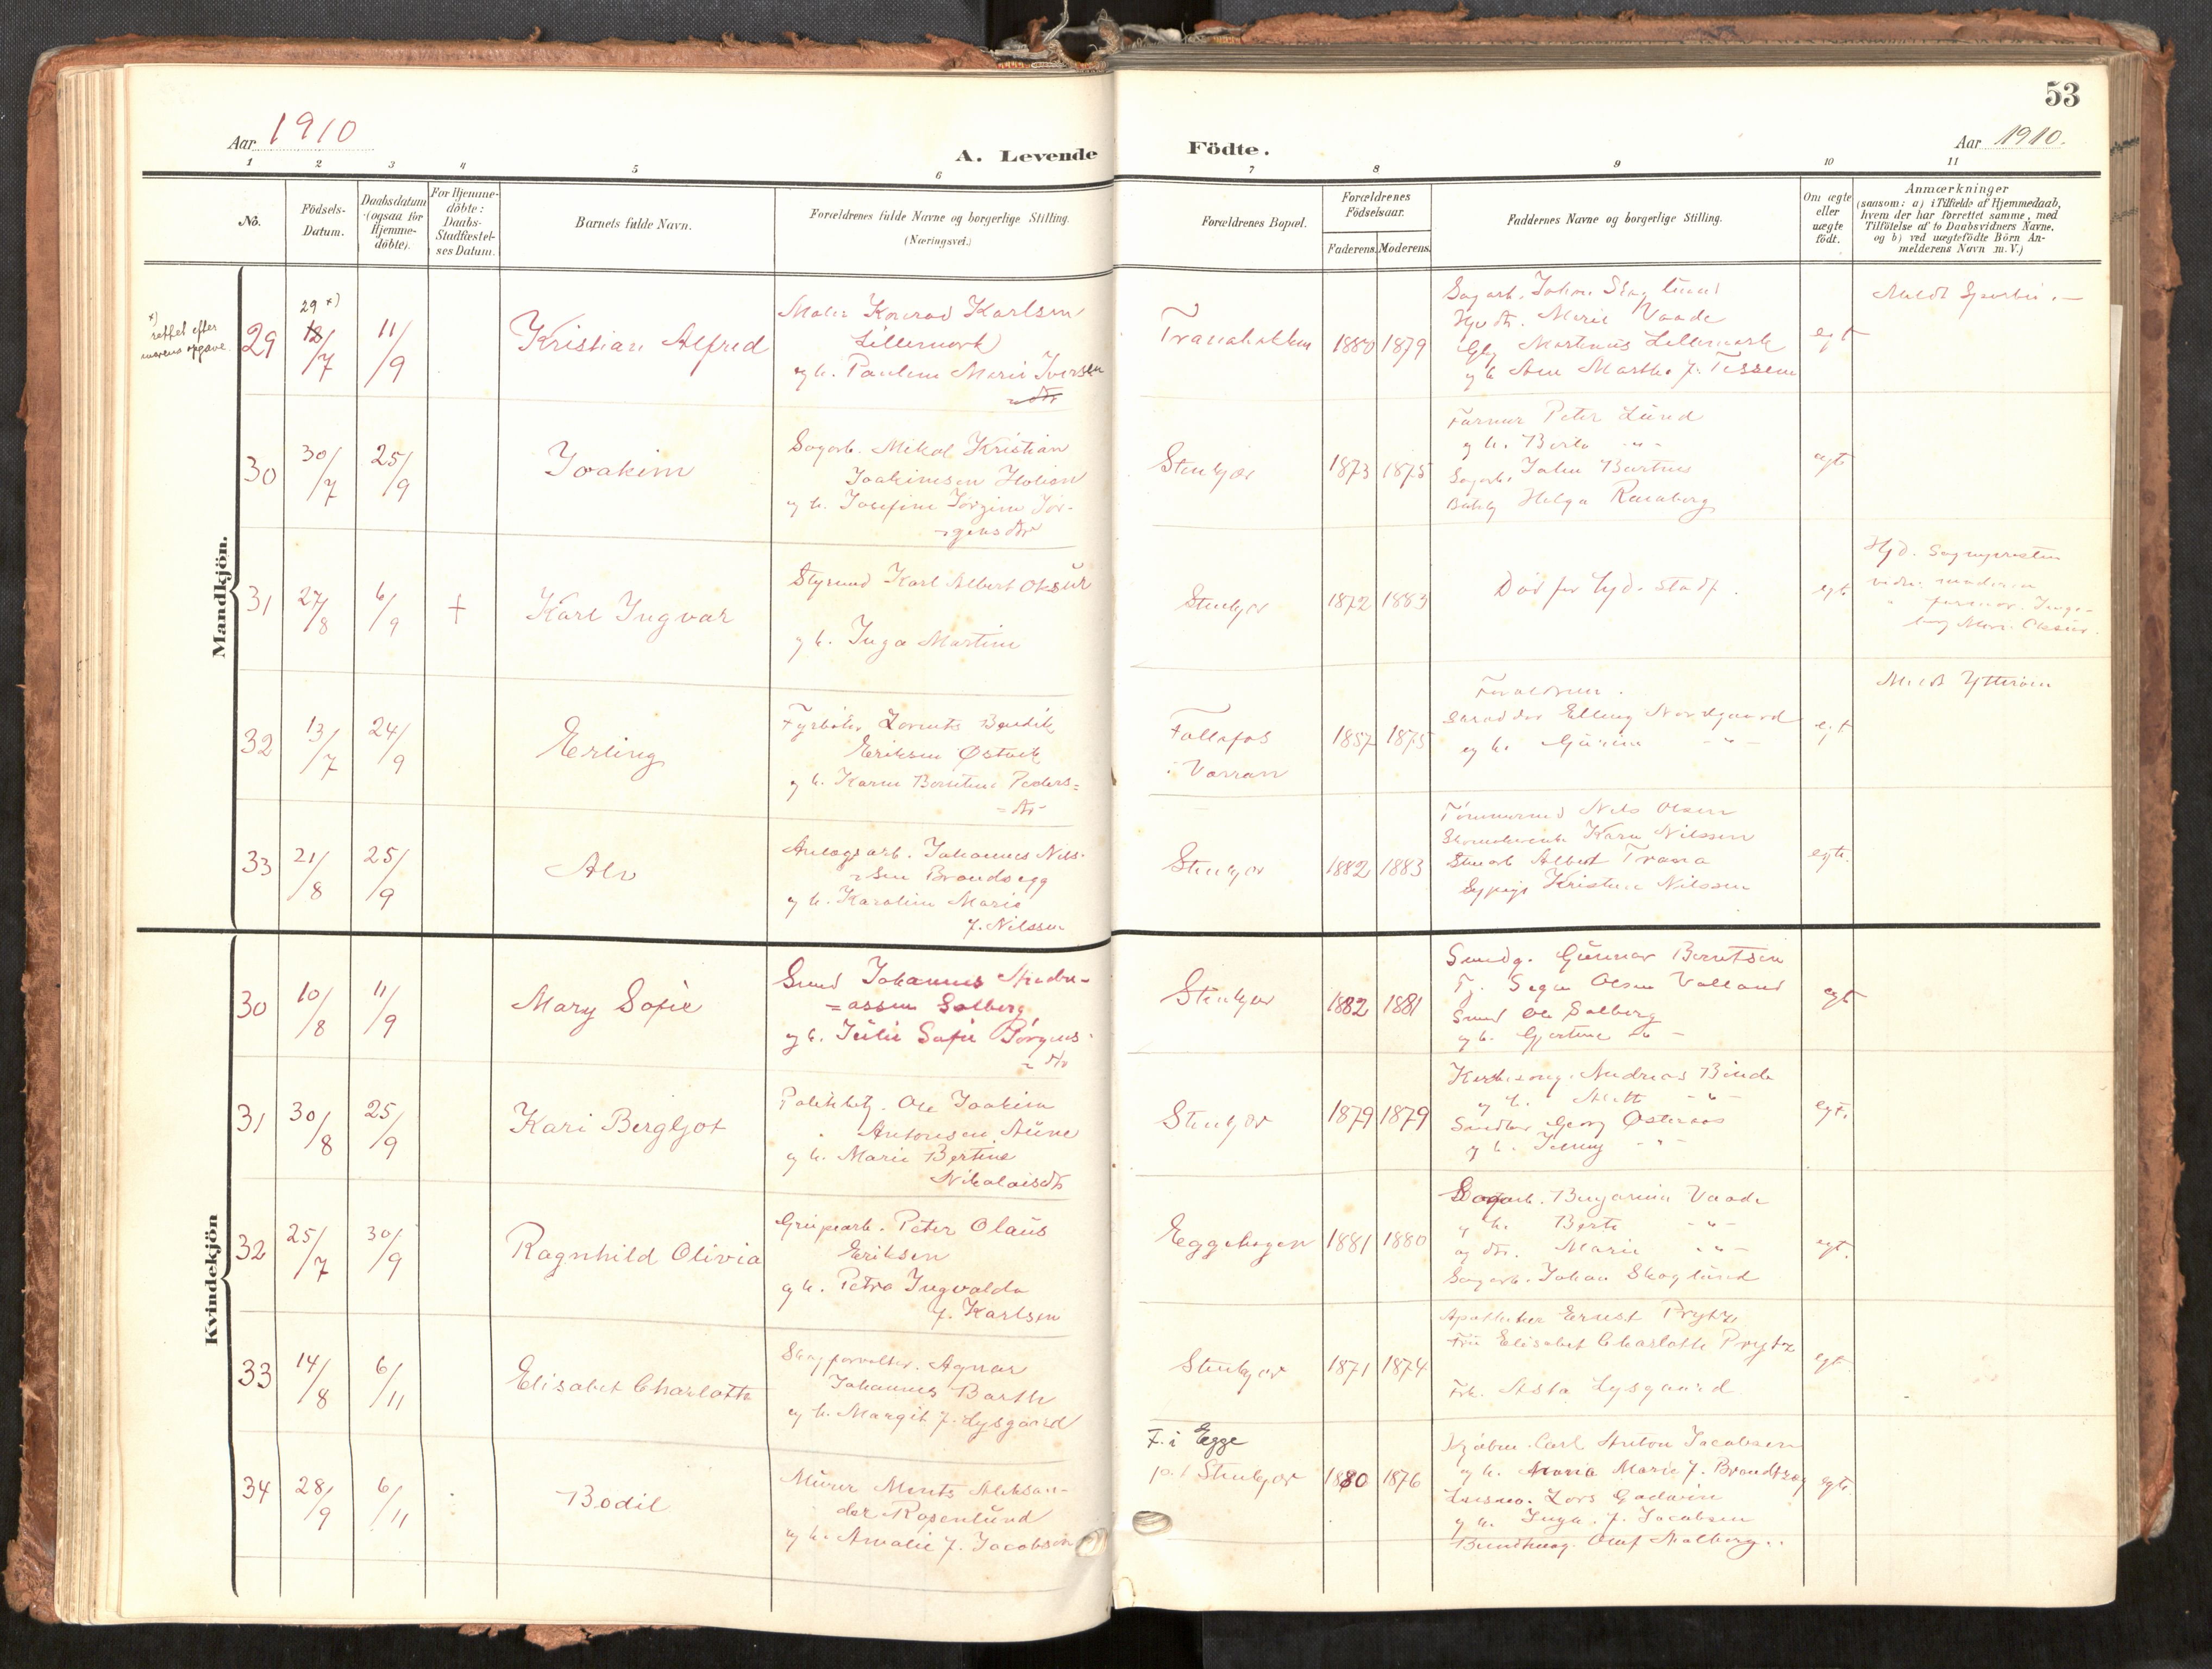 53
Aar 1910
A. Levende Födte.
Aar 1910.
1 2 3 4 5 6 7 8 9 10 11
No.
Födsels-
Datum.
Daabsdatum
(ogsaa for
Hjemme-
döbte).
For Hjemme-
döbte:
Daabs-
Stadfæstel-
ses Datum.
Barnets fulde Navn.
Forældrenes fulde Navne og borgerlige Stilling.
(Næringsvei.)
Forældrenes Bopæl.
Forældrenes
Födselsaar.
Faderens. Moderens.
Faddernes Navne og borgerlige Stilling.
Om ægte
eller
uægte
födt.
Anmærkninger
(saasom: a) i Tilfælde af Hjemmedaab,
hvem der har forrettet samme, med
Tilföielse af to Daabsvidners Navne,
og b) ved uægtefödte Börn An-
melderens Navn m. V.)
Mandkjön.
x)
rettet efter
morens opgave.
29
29 x)
18/7
11/9
Kristian Alfred
Maler Konrad Karlsen
Lillemark
og h. Pauline Marie Iversen
Tranabakken
1880 1879
Sagarb. Johan Skoglund
Marie Vaade
Martinus Lillemark
og h. Ane Martha f. Tessem
egt
30
30/7
25/9
Joakim
Sagarb. Mikal Kristian
Joakimsen Holien
og h. Josefine Jörgine Jör-
gensdtr
Stenkjær
1873 1875
Farver Peter Lund
og h. Berta -"-
Sagarb. John Bartnes
Helga Ranaberg
egt
31
27/8
6/9
+
Karl Ingvar
Styrmand Karl Albert Oksur
og h. Inga Martine
Stenkjær
1872 1883
Död før hjd. stadf.
egt
Hjd. Sognepresten
vidn. moderen
farmor. Inge-
32
13/7
24/9
Erling
Fyrbøter Lorents Bendik
Eriksen Østvik
og h. Karen Berntine Peders-
dtr
Follafos
i Værran
1857 1875
Forældrene.
Skrædder Elling Nordgaard
og h. -"-
egt
Meldt Ytterøen
33
21/8
25/9
Alv
Anlægsarb. Johannes Nils-
sen Brandsegg
og h. Karoline Marie
f. Nilssen
Stenkjær
1882 1883
Tömmermd Nils Olsen
Karen Nilssen
Albert Trana
Sypige Kristine Nilssen
egte.
Kvindekjön
30
10/8
11/9
Mary Sofie
Smed Johannes Andre-
assen Solberg
og h. Julie Sofie Börgens-
dtr
Stenkjær
1882 1881
Smedg. Gunnar Berntsen
Olsen Valland
Smed Ole Solberg
og h. Gjertine -"-
egt
31
30/8
25/9
Kari Bergljot
Politibetj. Ole Joakim
Antonsen Aune
og h. Marie Bertine
Nikolaisdtr
Stenkjær
1879 1879
Kirkesang. Andreas Binde
og h. -"-
Georg Østeraas
og h. Jenny -"-
egt.
32
25/7
30/9
Ragnhild Olivia
Grubearb. Peter Olaus
Eriksen
og h. Petra Ingvalda
f. Karlsen
Eggehagen
1881 1880
Sagarb. Benjamin Vaade
og h. Berte -"-
og dtr. Marie -"-
Sagarb. Johan Skoglund
egt.
33
14/8
6/11
Elisabet Charlotte
Skogforvalter. Agnar
Johannes Barth
og h. Margit f. Lysgaard
Stenkjær
1871 1874
Apotheker Ernst Prytz
Fru Elisabet Charlotte Prytz
Frk. Asta Lysgaard
egt.
34
28/9
6/11
Bodil
Murer Ments Aleksan-
der Rosenlund
og h. Amalie f. Jacobsen
F. i Egge
p.t. Stenkjær
1880 1876
Kjöbm. Carl Anton Jacobsen
og h. Maria Marie f. Brandtzæg
Lars Gadvin
og h. Inga f. Jacobsen
Olaf Malberg
egte.